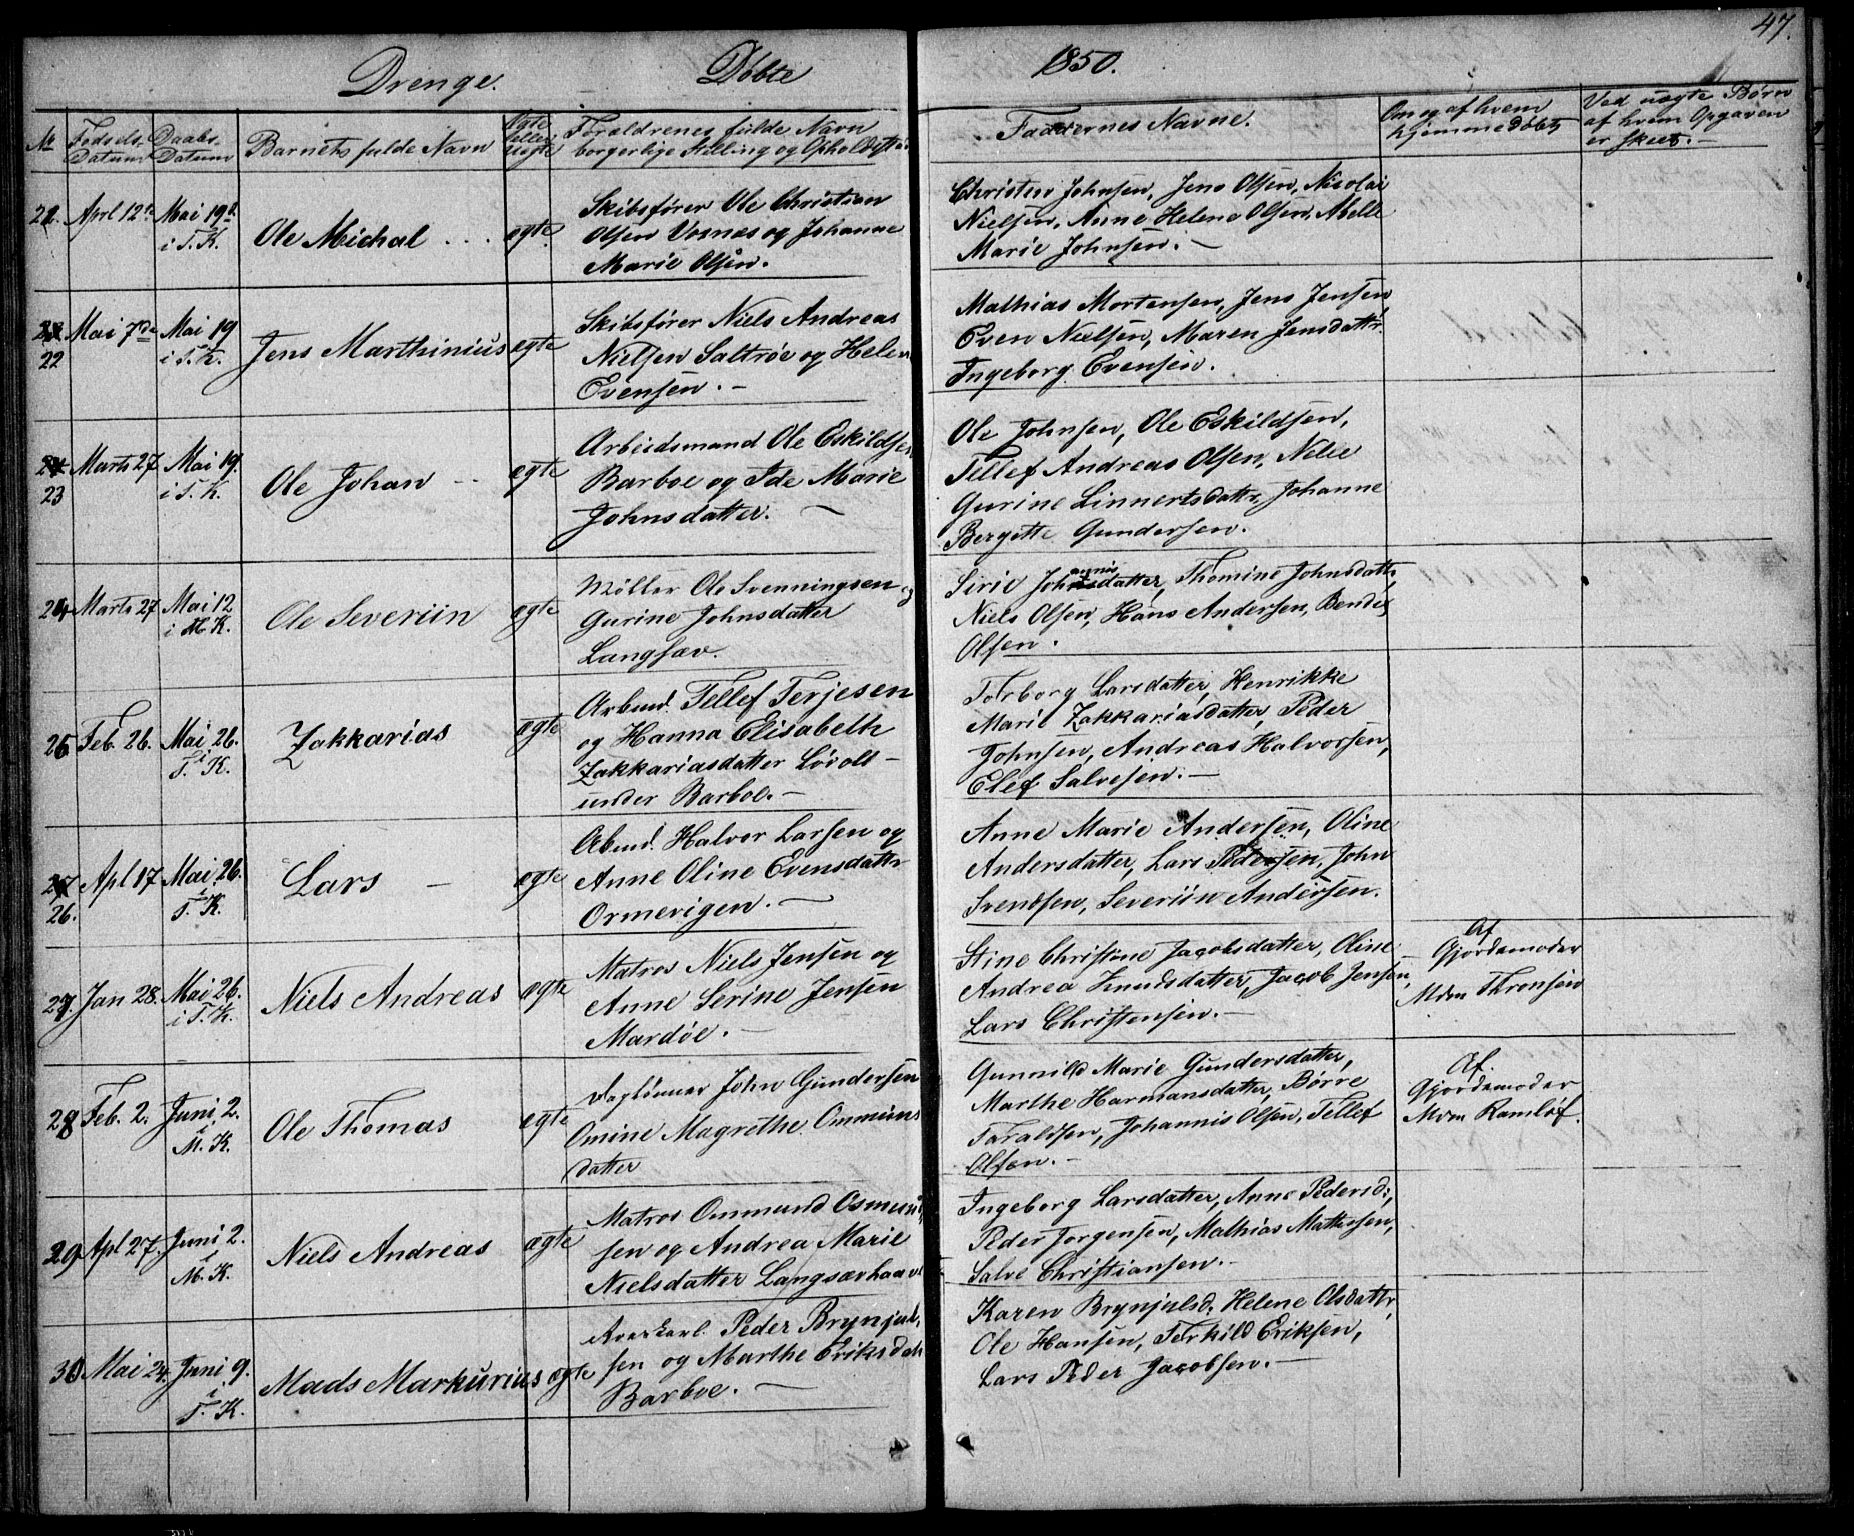 47.
Drenge. Døbte 1850.
№ Fødsels Datum Daabs Datum Barnets fulde Navn Ægte eller uægte Forældrenes fulde Navn borgerlige Stilling og Opholdsste Faddernes Navne. Om og af hvem hjemmedøbt Ved uægte Børn af hvem Opgaven er skeet. -
21. Aprl 12te Mai 19de i T. K. Ole Michal ... ægte
Skibsfører Ole Christian
Olsen Vosnæs og Johanne
Marie Olsen.
Christine Johnsen, Jens Olsen, Nicolai
Nielsen, Anne Helene Olsen, Abelle
Marie Johnsen. -
22 Mai 7de Mai 19 i T. K. Jens Marthinius ægte
Skibsfører Niels Andreas
Nielsen Saltrøe og Helen
Evensen. -
Mathias Mortensen, Jens Jensen
Even Nielsen, Maren Jensdattr
Ingeborg Evensen.
23 Marts 27 Mai 19. i T. K. Ole Johan - - ægte
Arbeidsmand Ole Eskildse
Barboe og Ide Marie
Johnsdatter. -
Ole Johnsen, Ole Eskildsen,
Tellef Andreas Olsen, Nelle
Gurine Linnertsdattr, Johanne
Bergette Gundersen.
24 Marts 27 Mai 12 i M. K. Ole Severiin ægte
Møller Ole Svenningsen og
Gurine Johnsdatter
Langsæv.
Sirie Johannisdatter, Thomine Johnsdattr,
Niels Olsen, Hans Andersen, Bendes
Olsen.
25 Feb. 26. Mai 26. i T. K. Zakkarias ægte
Arbmd. Tellef Terjesen
og Hanna Elisabeth
Zakkariasdatter Løvolt -
under Barboe. -
Torborg Larsdatter, Henrikke
Marie Zakkariasdatter, Peder
Johnsen, Andreas Halvorsen,
Elef Salvesen. -
26. Apl 17 Mai 26. i T. K. Lars - ægte
Abmd. Halvor Larsen og
Anne Oline Evensdattr
Ormevigen. -
Anne Marie Andersen, Oline
Andersdatter, Lars Pedersen, John
Svendsen, Severiin Andersen.
27. Jan 28. Mai 26. i T. K. Niels Andreas ægte
Matros Niels Jensen og
Anne Serine Jensen
Mardøe. -
Stine Christine Jacobsdatter, Oline
Andrea Knudsdatter, Jacob Jensen,
Lars Christensen. -
Af
Gjordemoder
Mdm Thronsen
28 Feb. 2. Juni 2. i M. K. Ole Thomas ægte
Daglønner John Gundersen
Omine Magrethe Ommuns
datter
Gunnild Marie Gundersdatter,
Marthe Harmansdatter, Børre
Taraldsen, Johannis Olsen, Tellef
Olsen. -
Af.
Gjordemoder
Mdm Ramløf.
29 Apl 27. Juni 2. i M. K. Niels Andreas ægte
Matros Ommund Osmund
sen og Andrea Marie
Nielsdatter Langsævhaave
Ingeborg Larsdatter, Anne Pedersd:,
Peder Jorgensen, Mathias Mattissen,
Salve Christiansen. -
30 Mai 24. Juni 9. i T. K. Mads Markurius ægte
Peder Brynjul,
sen og Marthe Eriksdatt
Barboe. -
Karen Brynjulsd. Helene Olsdattr,
Ole Hansen, Terkild Eriksen,
Lars Peder Jacobsen. -